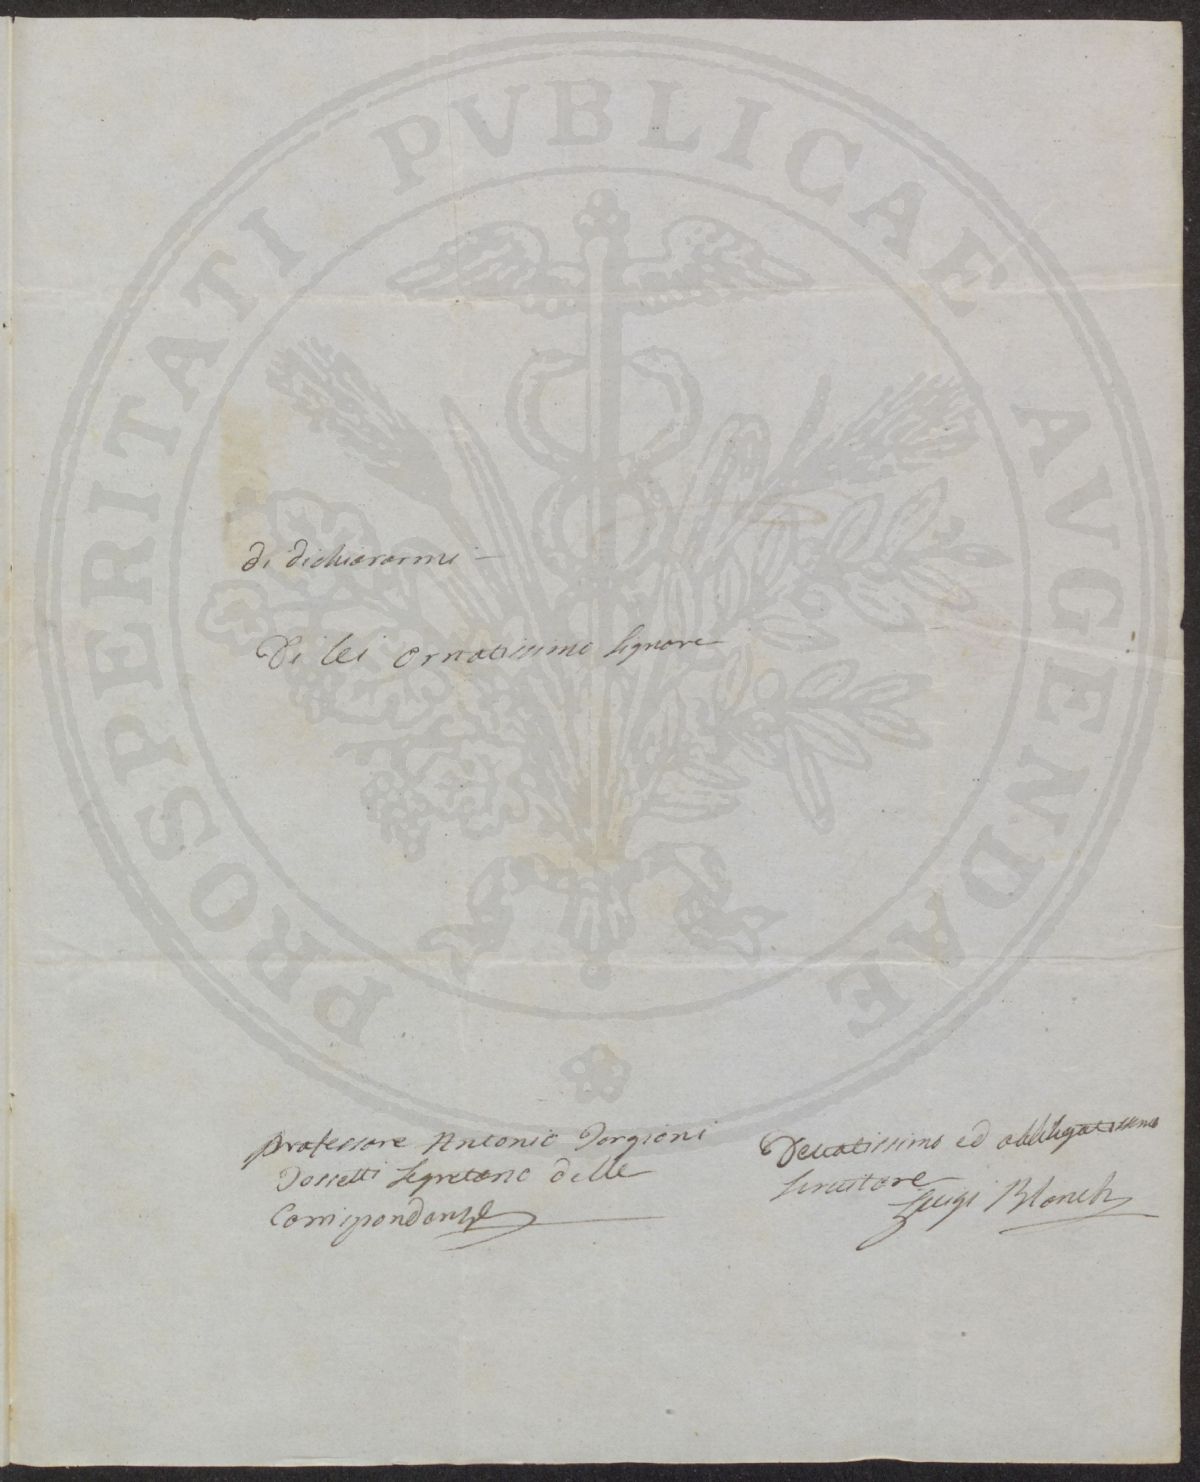 PROSPERITATI PVBLICAE AVGENDAE
di dichiararmi
Di lei Ornatissimo Signore
Professore Antonio Targioni
Tozzetti Segretario delle
Corrispondenze
Devotissimo ed obbligatissimo
Servitore
Luigi Blanch